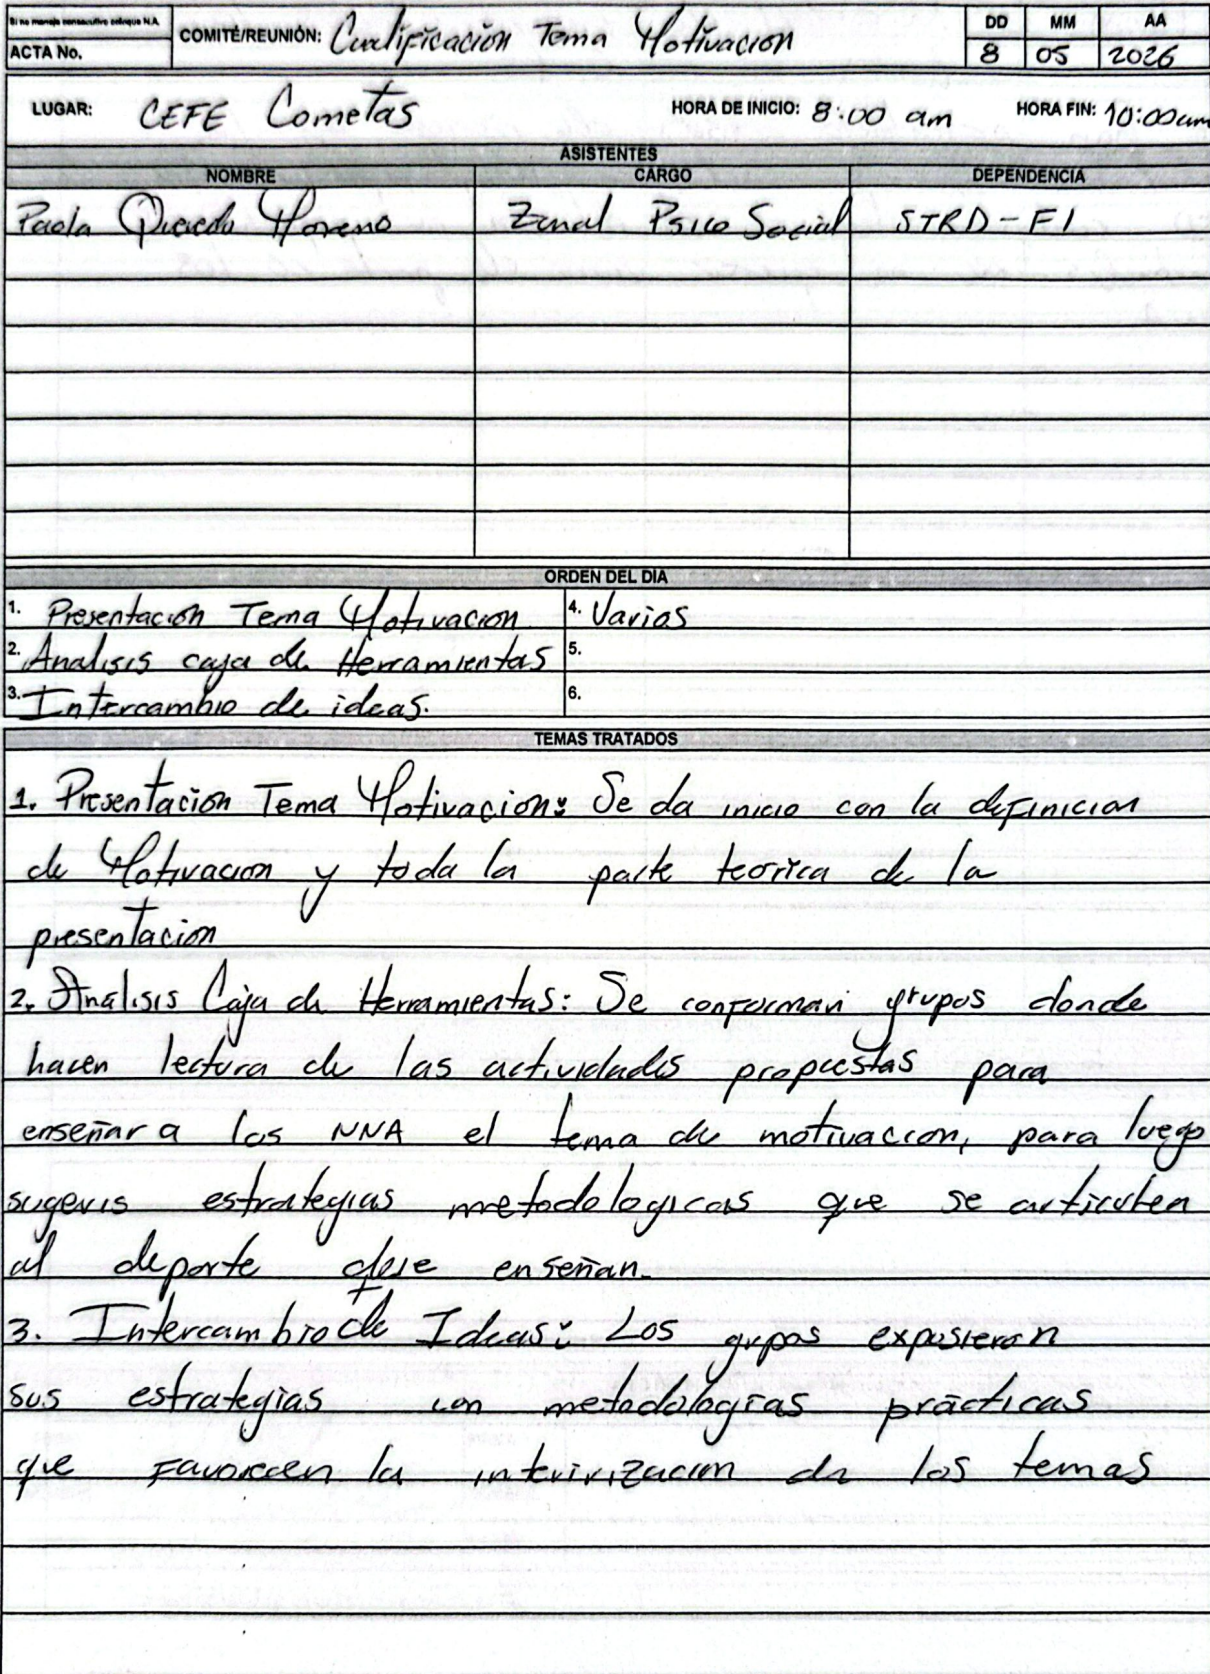 Si no maneja consecutivo coloque N.A.
ACTA No.
COMITÉ/REUNIÓN: Cualificación Tema Motivacion
DD MM AA
8 05 2026
LUGAR: CEFE Cometas HORA DE INICIO: 8:00 am HORA FIN: 10:00am
ASISTENTES
NOMBRE CARGO DEPENDENCIA
Paola Moreno Zonal Psico Social STRD-FI
ORDEN DEL DIA
1. Presentación Tema Motivacion 4. Varios
2. Analisis caja de Herramientas 5.
3. Intercambio de ideas. 6.
TEMAS TRATADOS
1. Presentación Tema Motivacion: Se da inicio con la definicion
de Motivacion y toda la parte teórica de la
presentacion
2. Análisis Caja de Herramientas: Se conforman grupos donde
hacen lectura de las actividades propuestas para
enseñar a los NNA el tema de motivacion, para luego
sugerir estrategias metodologicas que se articulen
al deporte que enseñan.
3. Intercambio de Ideas: Los grupos expusieron
sus estrategias con metodologías prácticas
que favorecen la de los temas